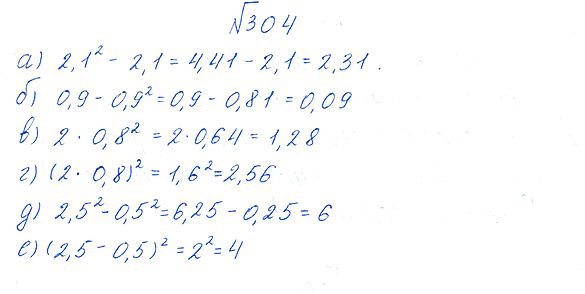 √304
а) 2,1² - 2,1 = 4,41 - 2,1 = 2,31.
б) 0,9 - 0,9² = 0,9 - 0,81 = 0,09
в) 2 · 0,8² = 2 · 0,64 = 1,28
г) (2 · 0,8)² = 1,6² = 2,56
д) 2,5² - 0,5² = 6,25 - 0,25 = 6
е) (2,5 - 0,5)² = 2² = 4